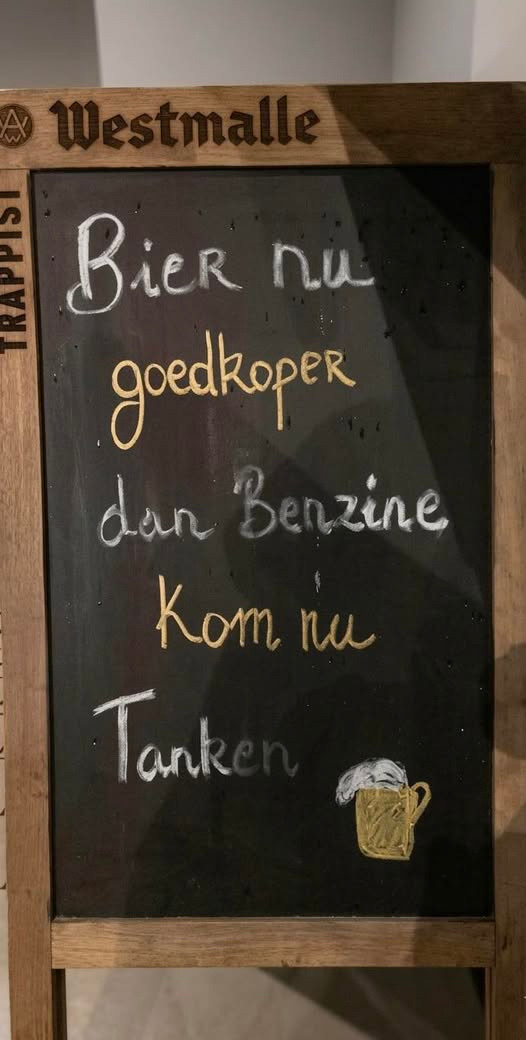 Westmalle
TRAPPIST
Bier nu
goedkoper
dan Benzine
Kom nu
Tanken